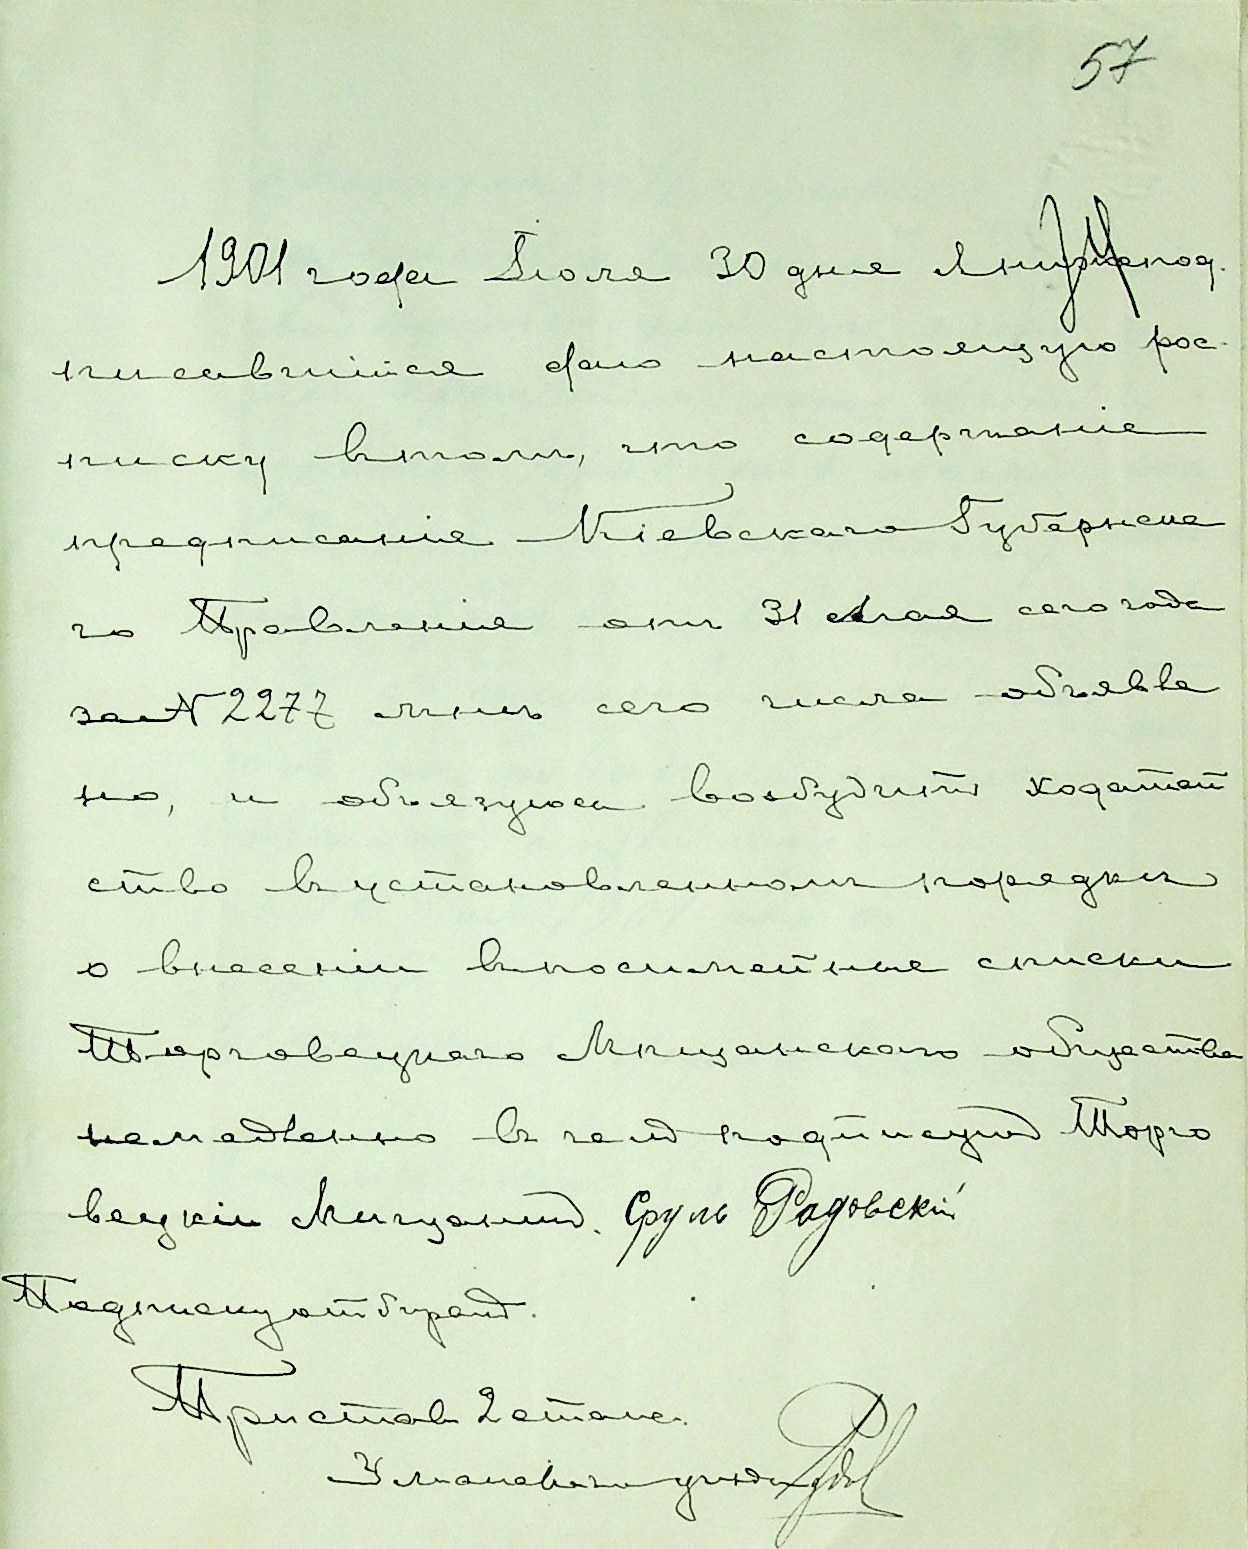 57
1901 года Іюля 30 дня Я нижепод-
писавшійся даю настоящую рос-
писку въ томъ, что содержаніе
предписанія Кіевскаго Губернска
го Правленія отъ 31 Мая сего года
за № 2277 мнѣ сего числа объявле
но, и обязуюсь возбудить ходатай
ство въ установленномъ порядкѣ
о внесеніи въ посимейные списки
Торговецкаго Мѣщанскаго общества
немедленно въ чемъ подписуюсь Торго
вецкій Мищанинъ. Сруль Радовскій
Подписку отбиралъ.
Приставъ 2 стана
Уманскаго уѣзда